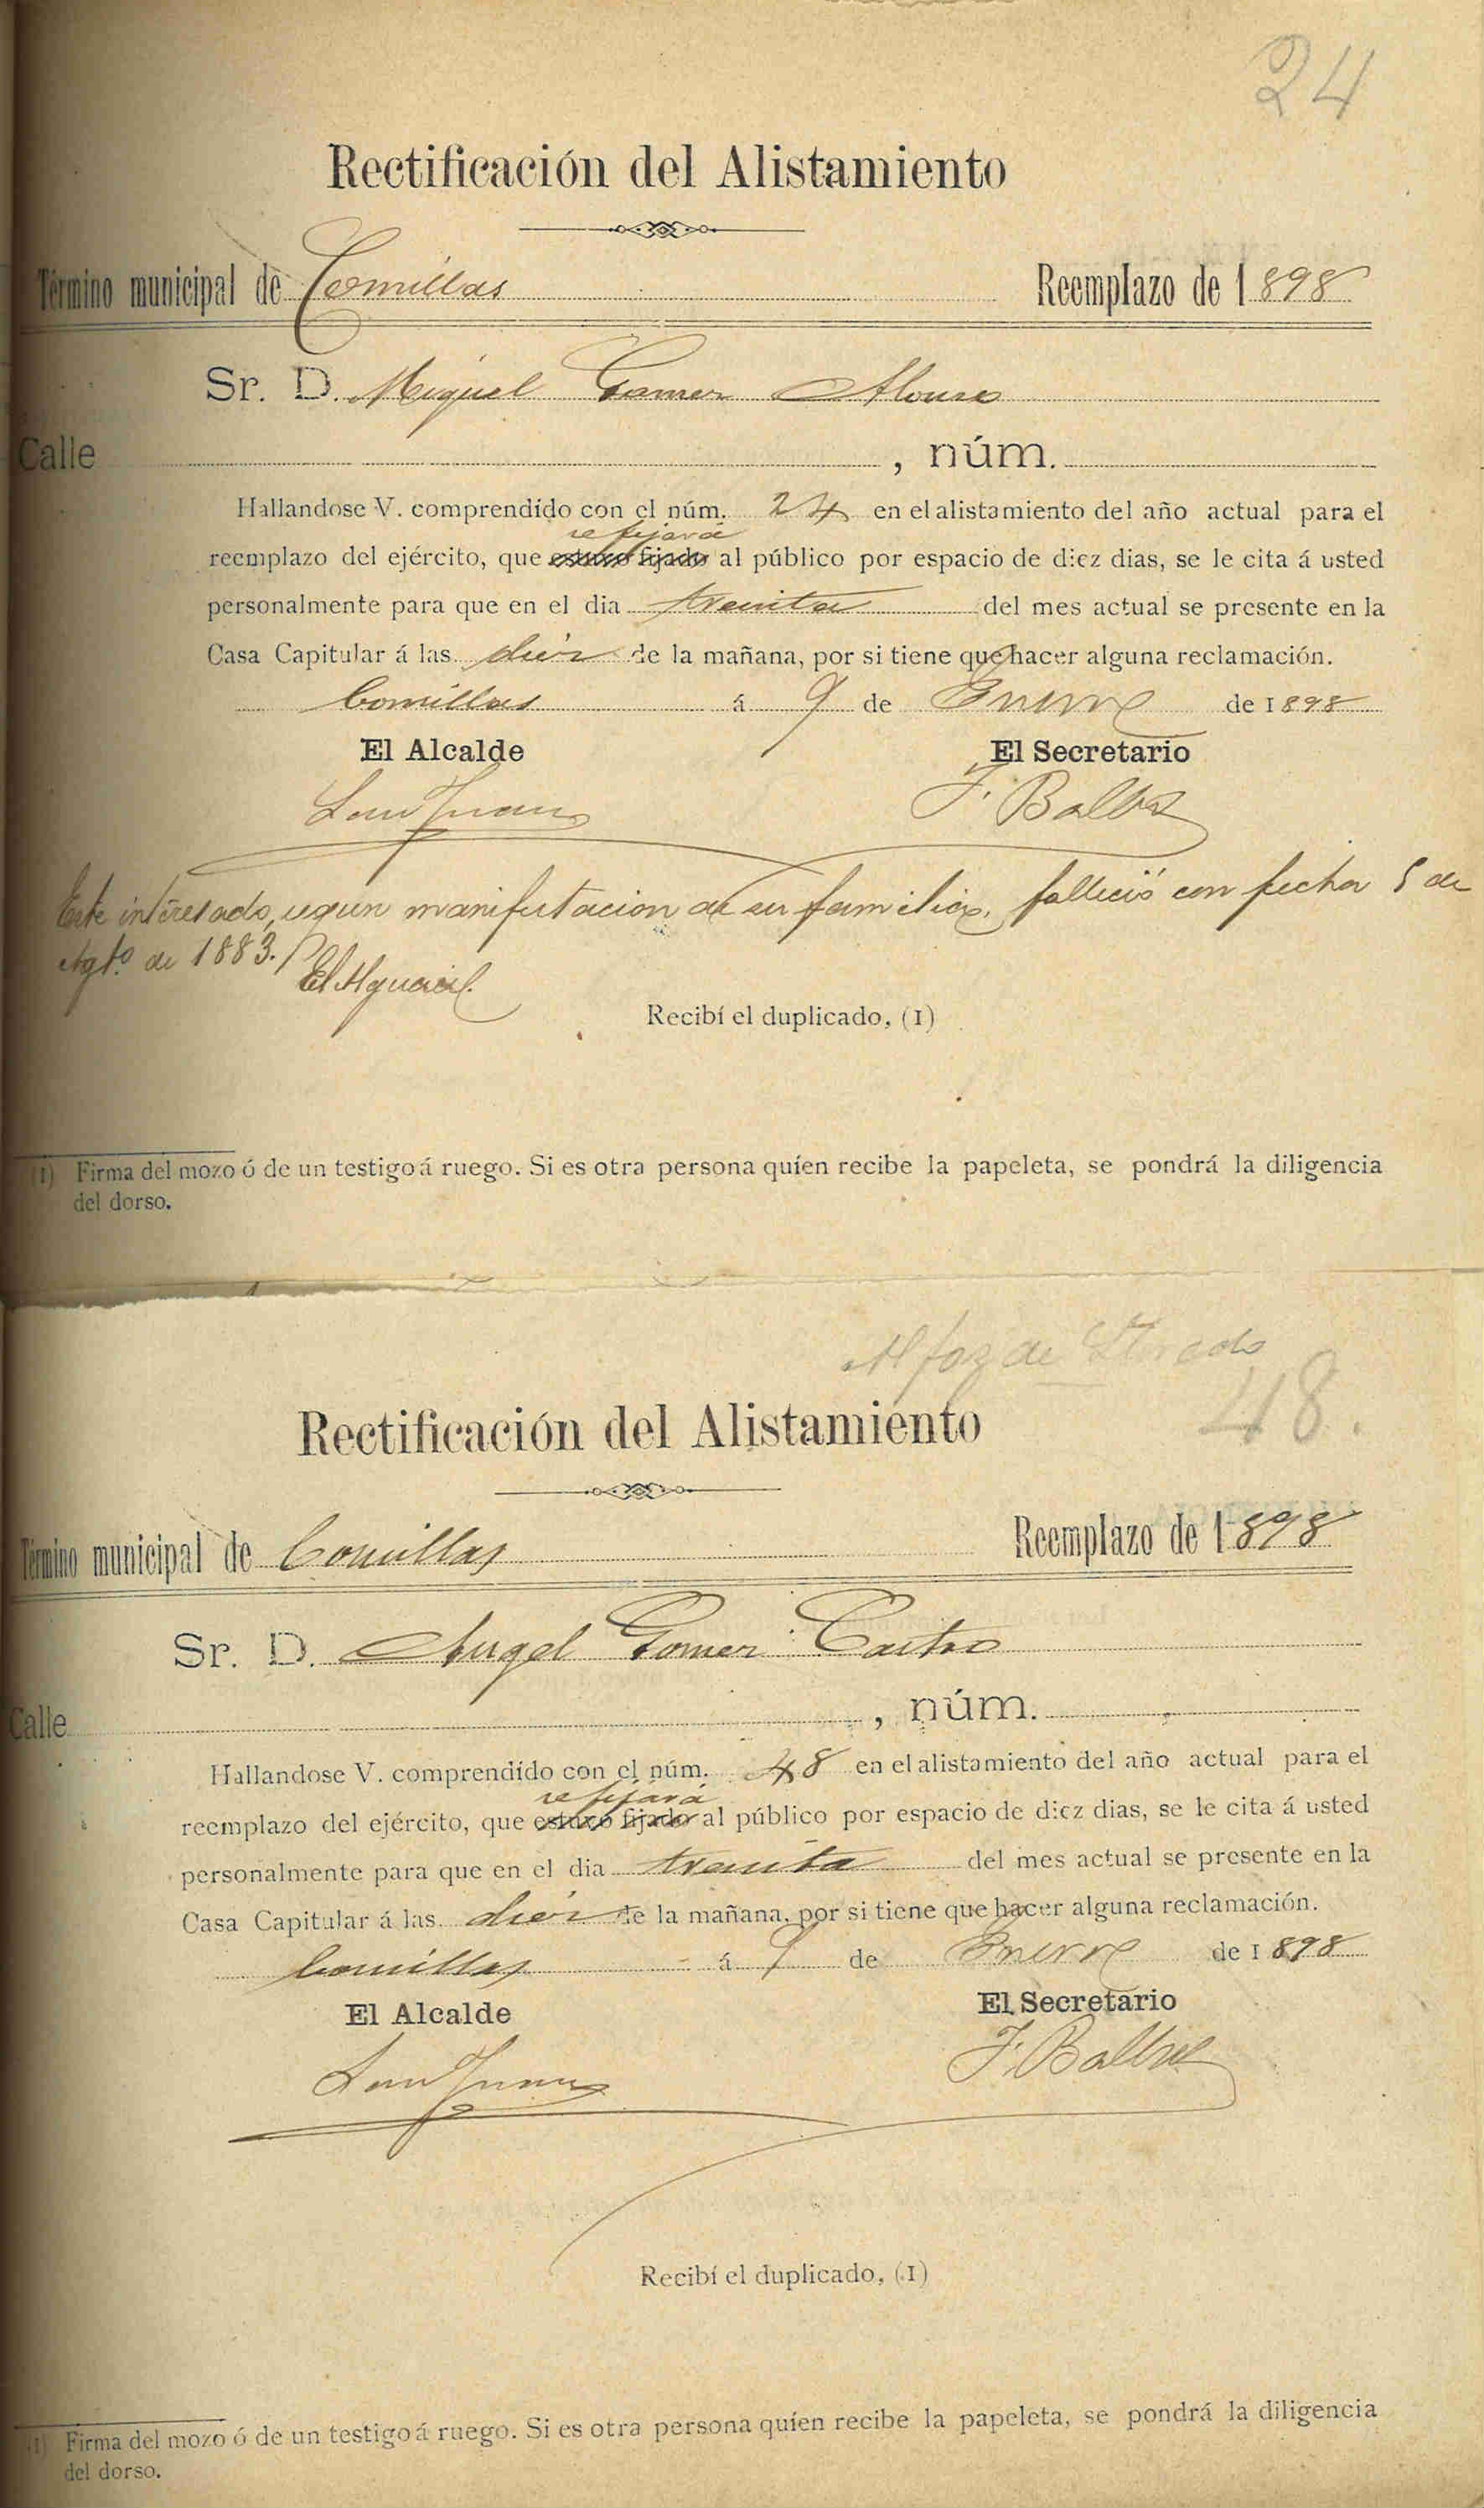 24
Rectificación del Alistamiento
Término municipal de Comillas Reemplazo de 1898
Sr. D. Miguel Gomez Alonso
Calle , núm.
Hallandose V. comprendído con el núm. 24 en el alistamiento del año actual para el
se fijará
reemplazo del ejército, que estuvo fijado al público por espacio de diez dias, se le cita á usted
personalmente para que en el dia treinta del mes actual se presente en la
Casa Capitular á las diez de la mañana, por si tiene que hacer alguna reclamación.
Comillas á 9 de Enero de 1898
El Alcalde El Secretario
San Juan F. Balbas
Este interesado, segun manifestacion de su familia, falleció con fecha 5 de
Agto. de 1883.
El Alguacil.
Recibí el duplicado, (1)
(1) Firma del mozo ó de un testigo á ruego. Si es otra persona quíen recibe la papeleta, se pondrá la diligencia
del dorso.
Alfoz de Lloredo
48.
Rectificación del Alistamiento
Término municipal de Comillas Reemplazo de 1898
Sr. D. Angel Gomez Castro
Calle , núm.
Hallandose V. comprendído con el núm. 48 en el alistamiento del año actual para el
se fijará
reemplazo del ejército, que estuvo fijado al público por espacio de diez dias, se le cita á usted
personalmente para que en el dia treinta del mes actual se presente en la
Casa Capitular á las diez de la mañana, por si tiene que hacer alguna reclamación.
Comillas á 9 de Enero de 1898
El Alcalde El Secretario
San Juan F. Balbas
Recibí el duplicado, (1)
(1) Firma del mozo ó de un testigo á ruego. Si es otra persona quíen recibe la papeleta, se pondrá la diligencia
del dorso.